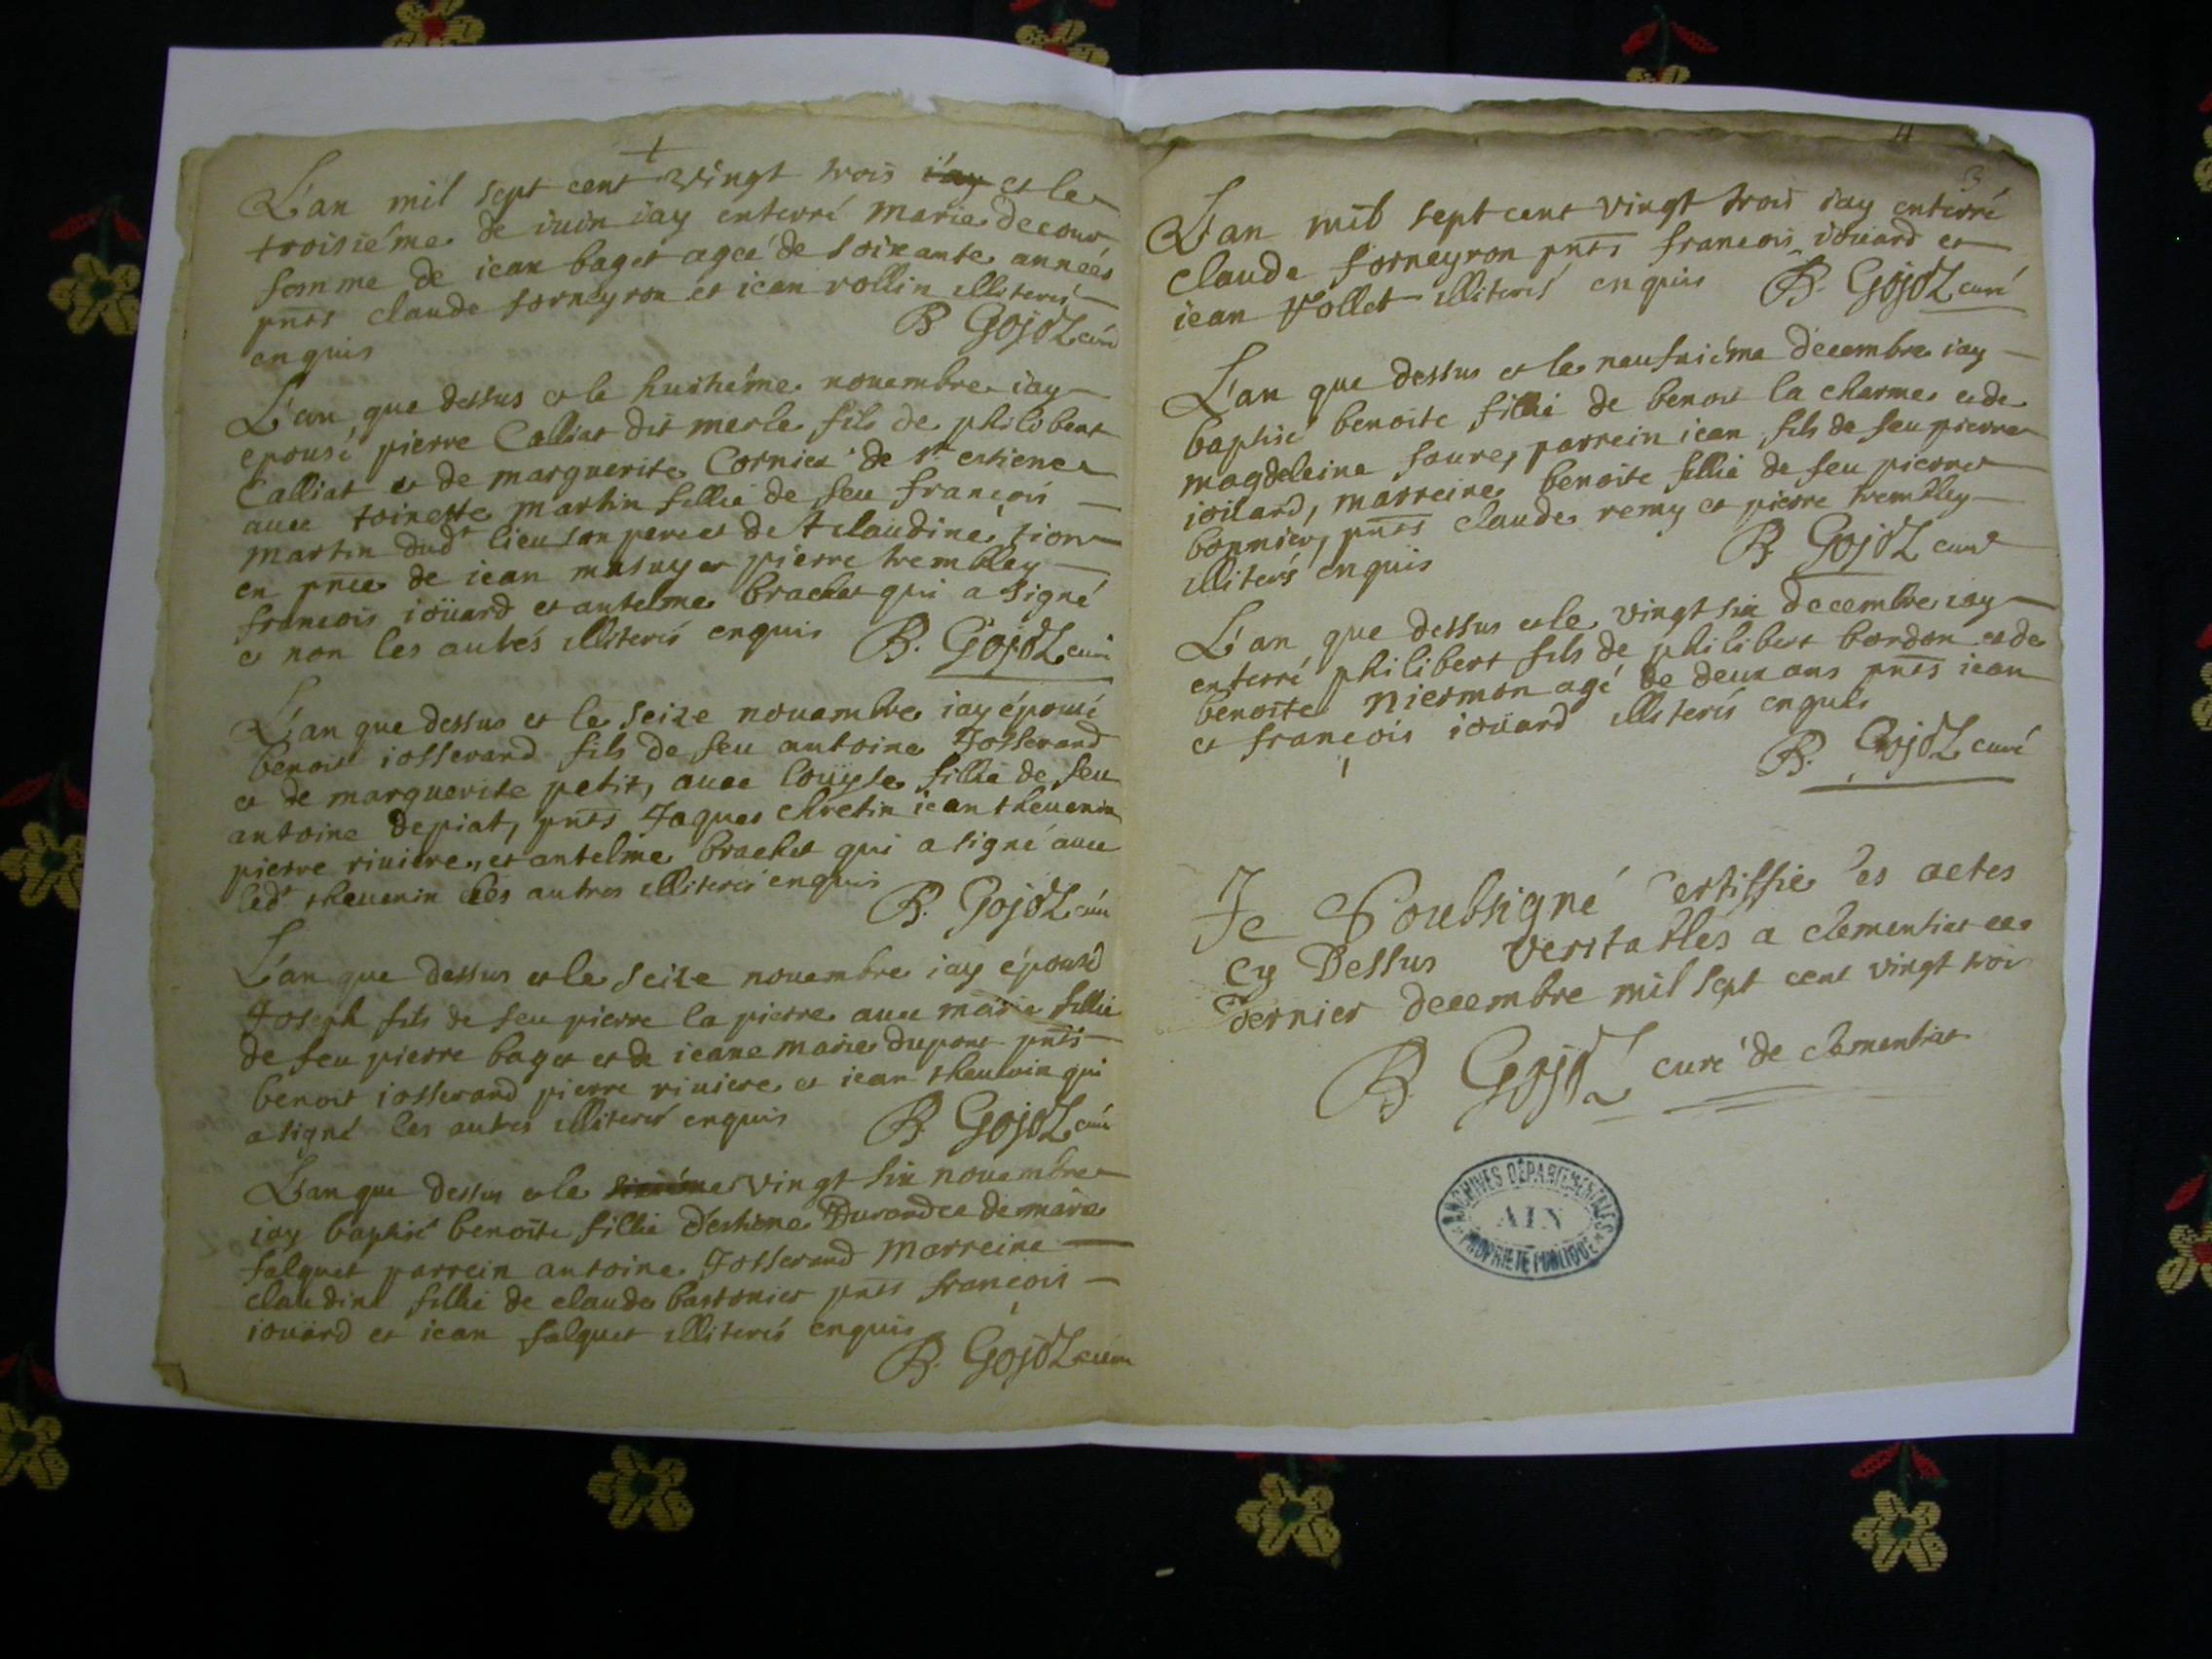 L'an mil sept cent vingt trois iay et le
troisiéme de iuin iay enterré marie decour
femme de iean baget agée de soixante années
pnts claude forneyron et iean rollin illiterés
enquis B Gojoz curé
L'an que dessus et le huitiéme nouembre iay
epousé pierre Calliat dit merle fils de philibert
Calliat et de marguerite Cornier de st estiene
auec toinette martin fillie de feu françois
martin dudt lieu son pere et de claudine tion
en pnce de iean masuyer pierre trembley
francois ioüard et antelme brachet qui a signé
et non les autres illiterés enquis B. Gojoz curé
L'an que dessus et le seize nouembre iay épousé
benoit iosserand fils de feu antoine Josserand
et de marguerite petit, auec loüyse fillie de feu
antoine depiat, pnts Jaques chretin iean theuenin
pierre riuiere, et antelme brachet qui a signé auec
ledt theuenin les autres illiterés enquis
B. Gojoz curé
L'an que dessus et le seize nouembre iay épousé
Joseph fils de feu pierre la pierre auec marie fillie
de feu pierre baget et de ieane marie dupont pnts
benoit iosserand pierre riuiere et iean theuenin qui
a signé les autres illiterés enquis B. Gojoz curé
L'an que dessus et le sixiéme vingt six nouembre
iay baptisé benoîte fillie d'estiene Durand et de marie
falquet parrein antoine Josserand marreine
claudine fillie de claude bastonier pnts françois
ioüard et iean falquet illiterés enquis
B. Gojoz curé
3
L'an mil sept cent vingt trois iay enterré
claude forneyron pnts francois ioüard et
iean Vollet illiterés enquis B. Gojoz curé
L'an que dessus et le neufuiéme decembre iay
baptisé benoite fillie de benoit la charme et de
magdeleine faure, parrein iean fils de feu pierre
ioüard, marreine benoite fillie de feu pierre
bonnier, pnts claude remy et pierre trembley
illiterés enquis B. Gojoz curé
L'an que dessus et le vingt six decembre iay
enterré philibert fils de philibert bordon et de
benoite niermon agé de deux ans pnts iean
et françois ioüard illiterés enquis
B. Gojoz curé
Je Soubsigné Certiffie les actes
Cy Dessus veritables a clementiat ce
dernier decembre mil sept cent vingt trois
B. Gojoz curé de clementiat
ARCHIVES DÉPARTEMENTALES
AIN
PROPRIÉTÉ PUBLIQUE